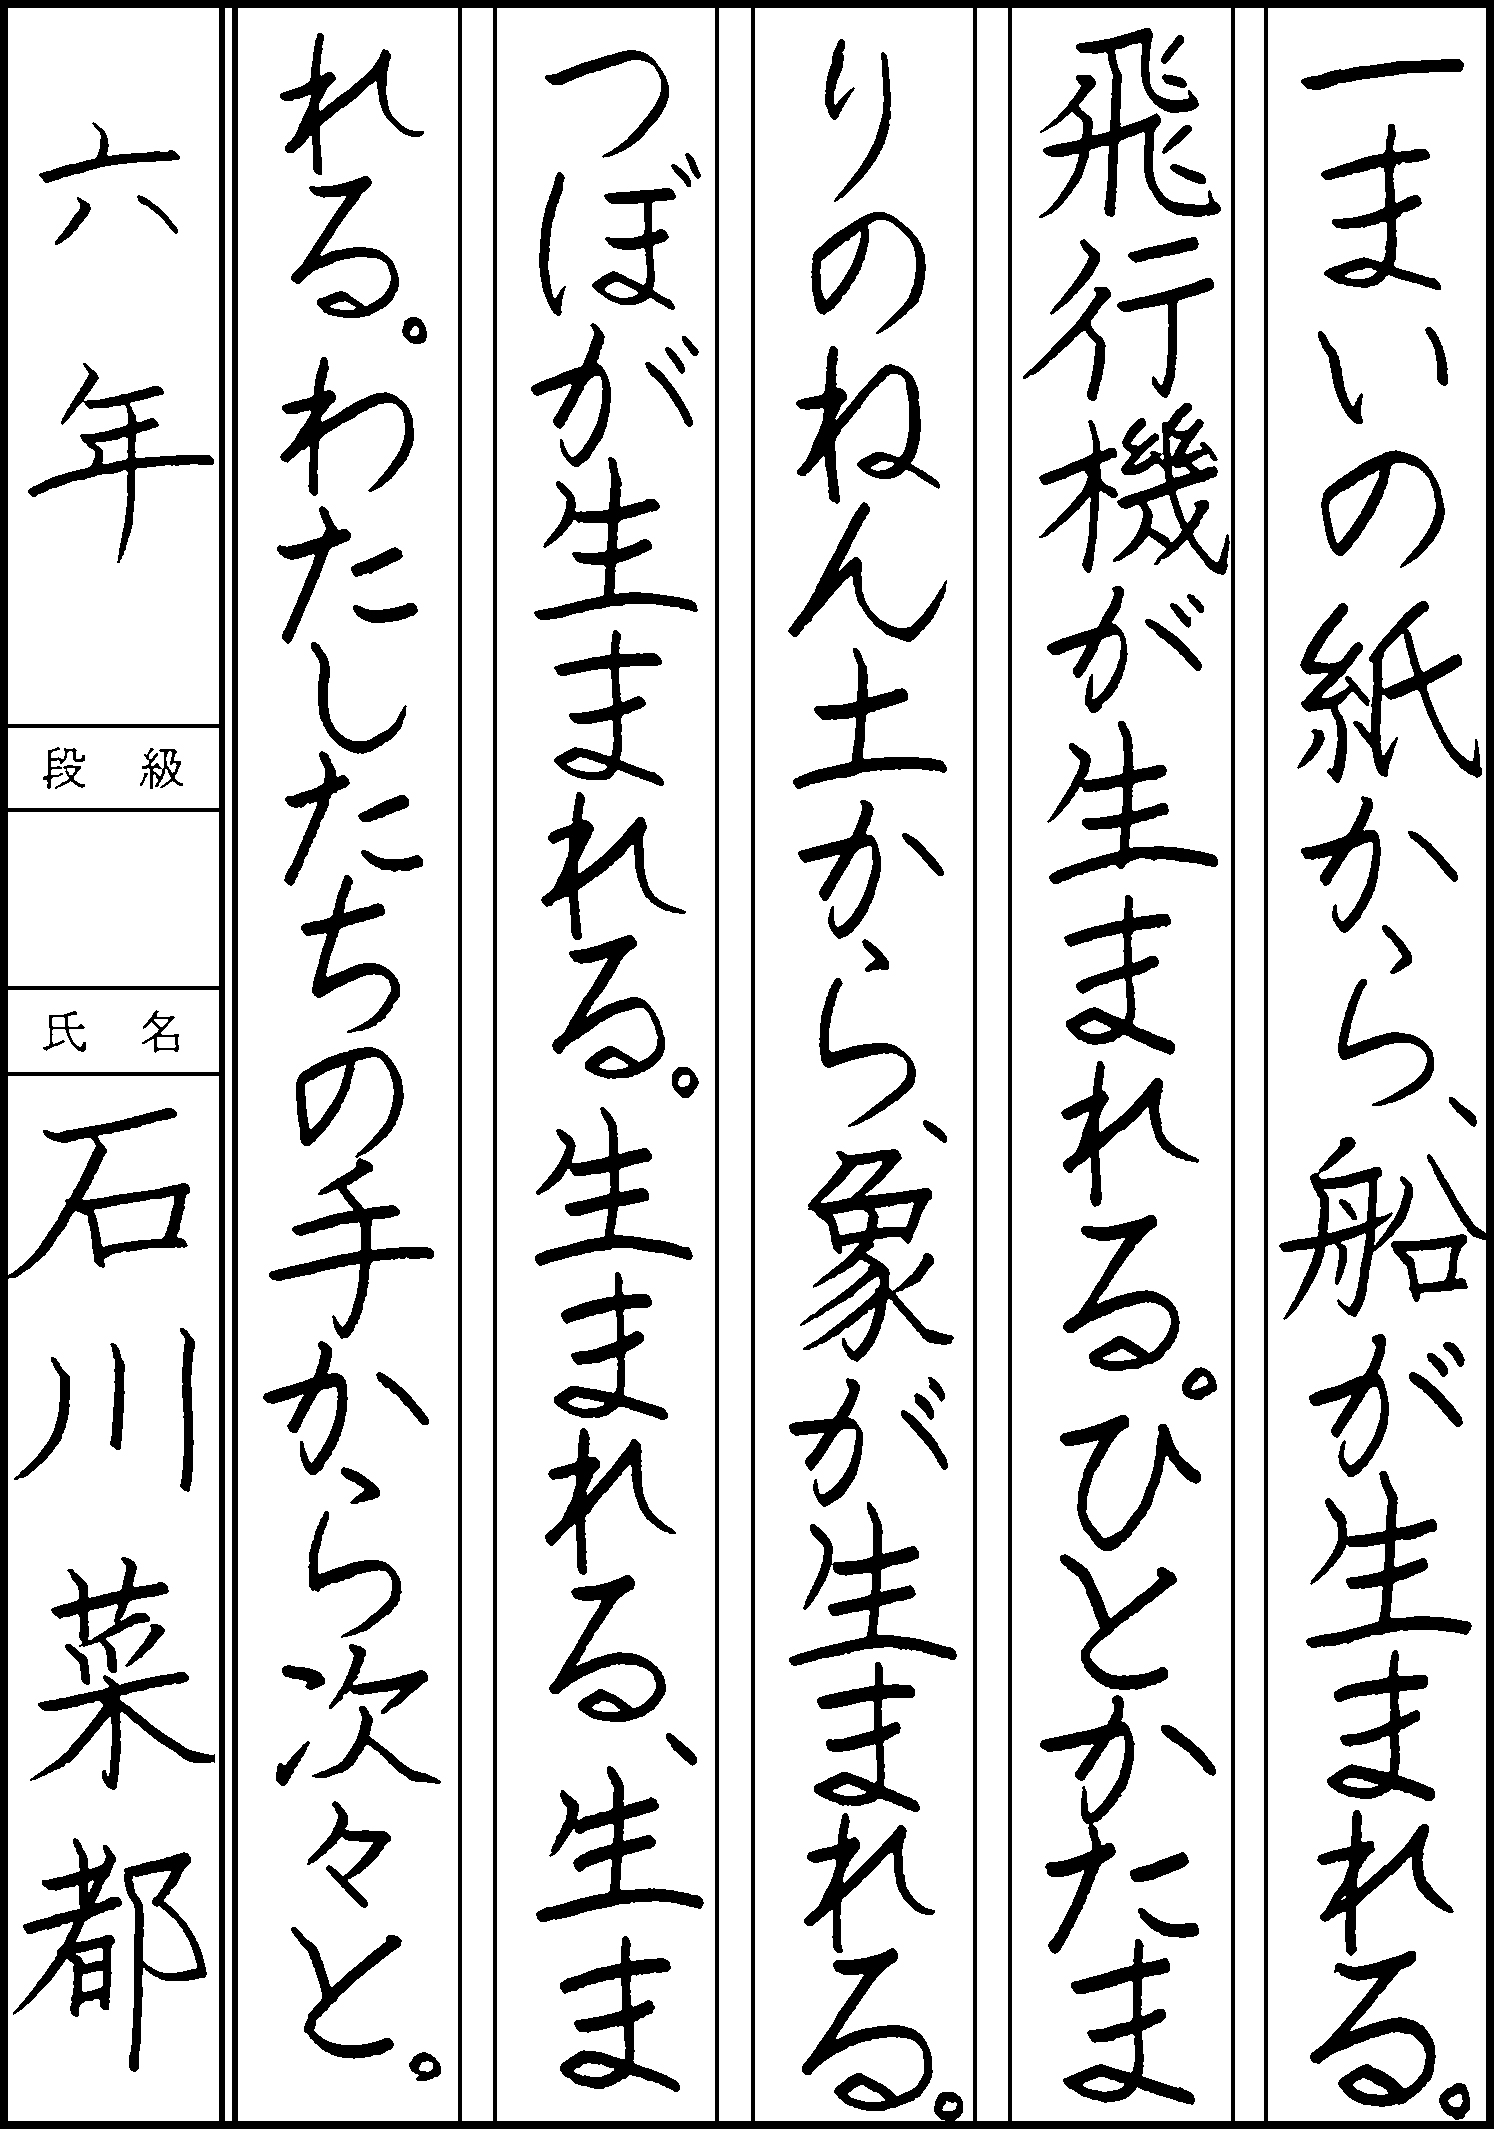 一まいの紙から、船が生まれる。
飛行機が生まれる。ひとかたま
りのねん土から、象が生まれる。
つぼが生まれる。生まれる、生ま
れる。わたしたちの手から次々と。
六年
段級
氏名
石川菜都